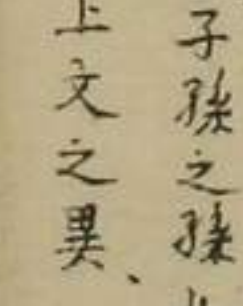 子孫之孫
上文之異、